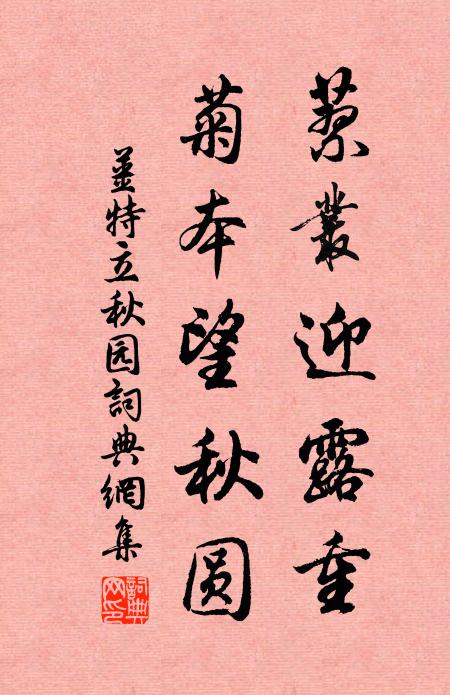 叢迎露重
菊本望秋圆
薑特立秋园詞典網集
詞典网印